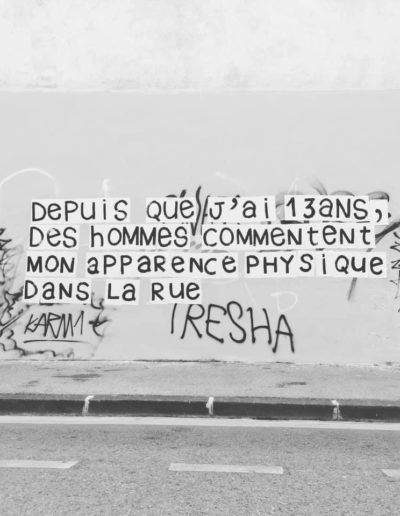 DePUIS QUE J'ai 13aNS,
Des hommes commentent
mon apparence PHYSIQUE
Dans La Rue
KARIM
TRESHA